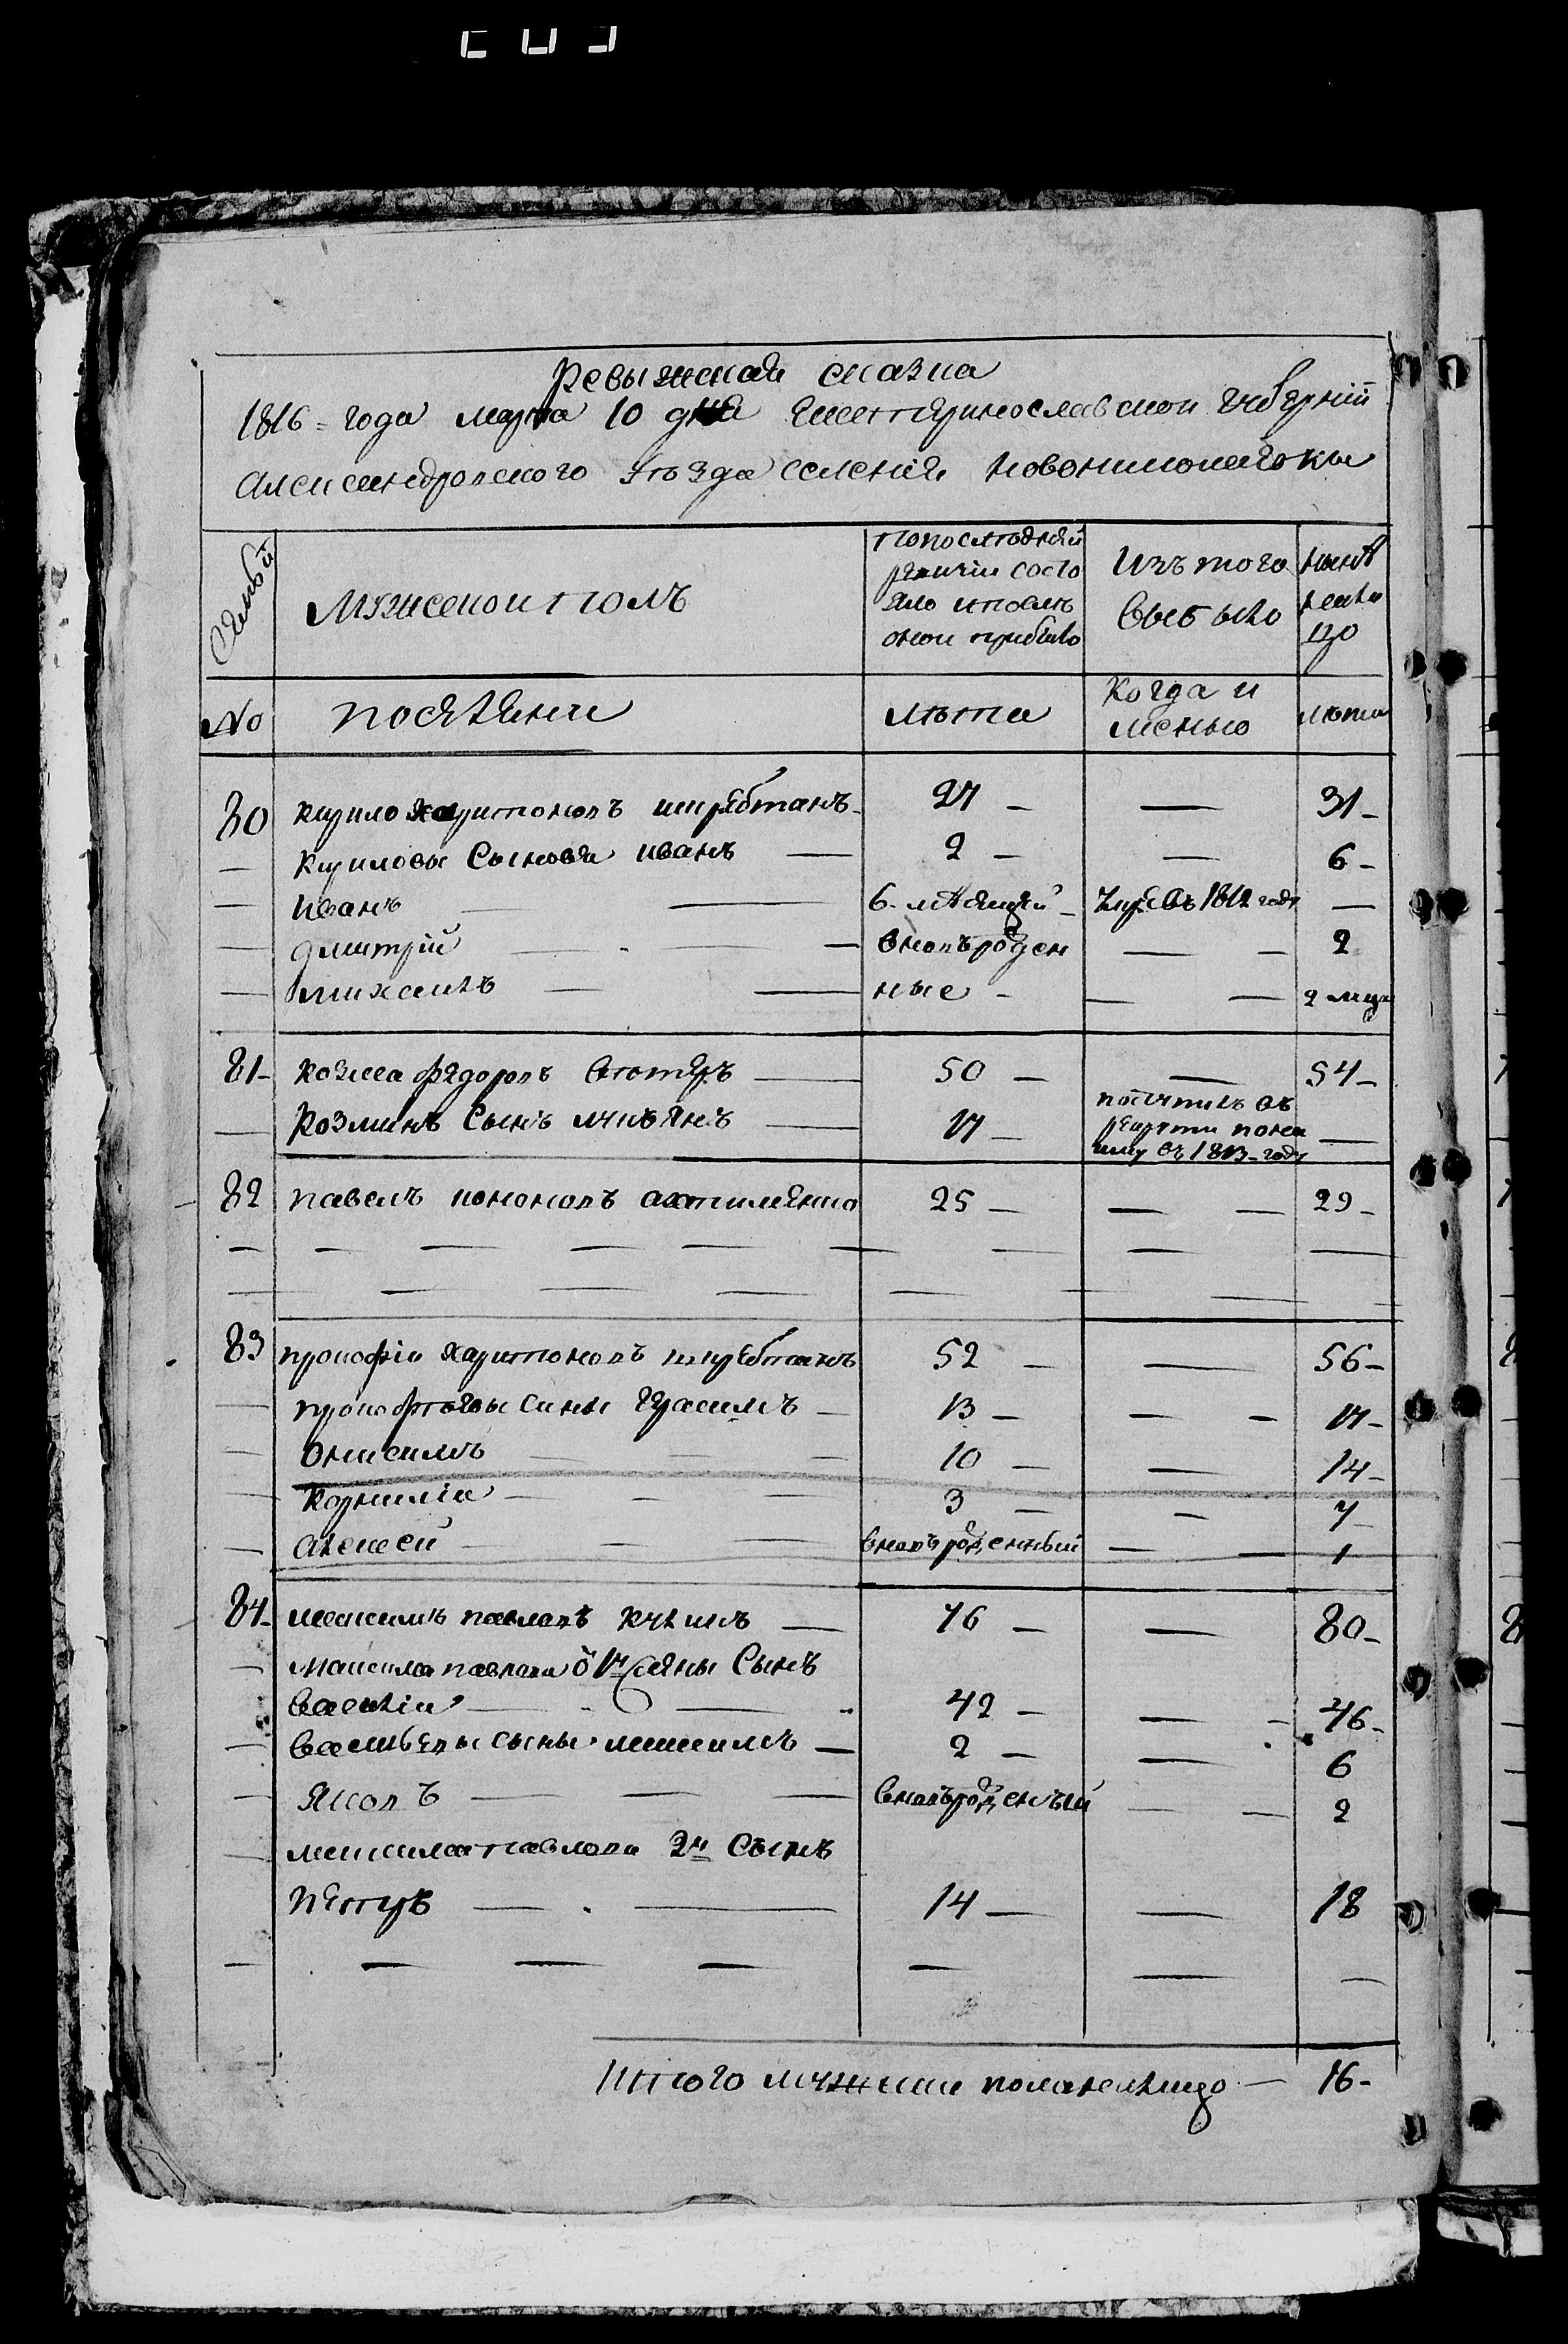 Ревыжская сказка
1816 = года марта 10 дня Екатеринославской губернии
Александровского уезда селения Новониколаевки
Семьи
Мужеской полъ
По последней ревизии состояло и после оной прибыло
Изъ того выбыло
Ныне на лицо
No
поселяни
лѣта
Когда и
лѣта
80 Кирило Харитоновъ 27 — — 31 —
— Кириловы Сыновя Иванъ — 2 — — 6 —
— Иванъ — 6. мѣсяцей — умре въ 1812 году —
— Дмитрий — вновърожден — — 2
— Михаилъ — ные — — 2 мца
81 — Козма Федоровъ — 50 — — 54 —
— Козминъ Сынъ — 17 — въ рекруты въ 1813 — году —
82 Павелъ 25 — — 29 —
83 Прокофiй Харитоновъ 52 — — 56 —
— Прокофьевы сины Герасимъ — 13 — — 17 —
— Онисимъ — 10 — — 14 —
— Корнилiй — 3 — — 7
— Алексей — вновърожденный — 1
84 — Максимъ Павловъ — 76 — — 80 —
— Максима Павлова Сынъ
Василiй — 42 — — 46 —
— Васильевы сыны Максимъ — 2 — — 6
— Яковъ — вновърожденый — 2
— Максима Павлова 2й Сынъ
Петръ — 14 — — 18
Итого мужеска пола налицо — 16 —